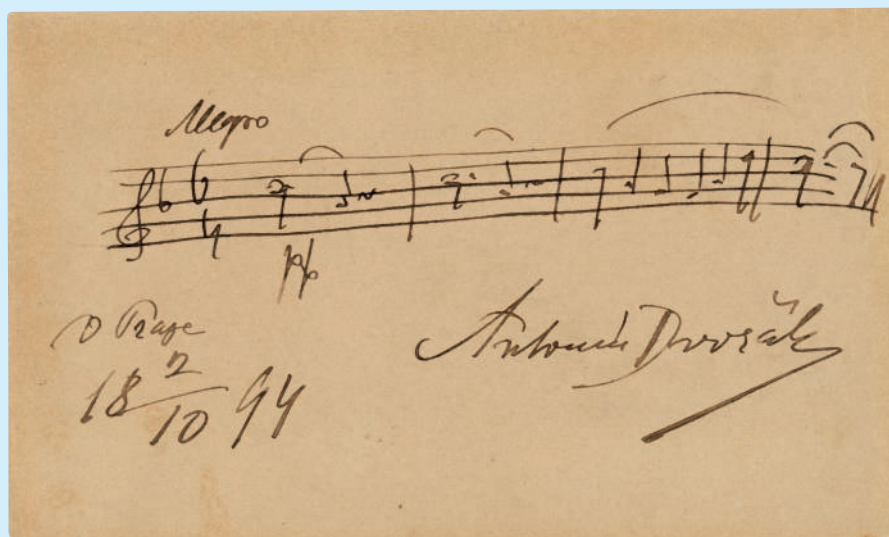 Allegro
6
4
pp
V Praze
18 2/10 94
Antonín Dvořák